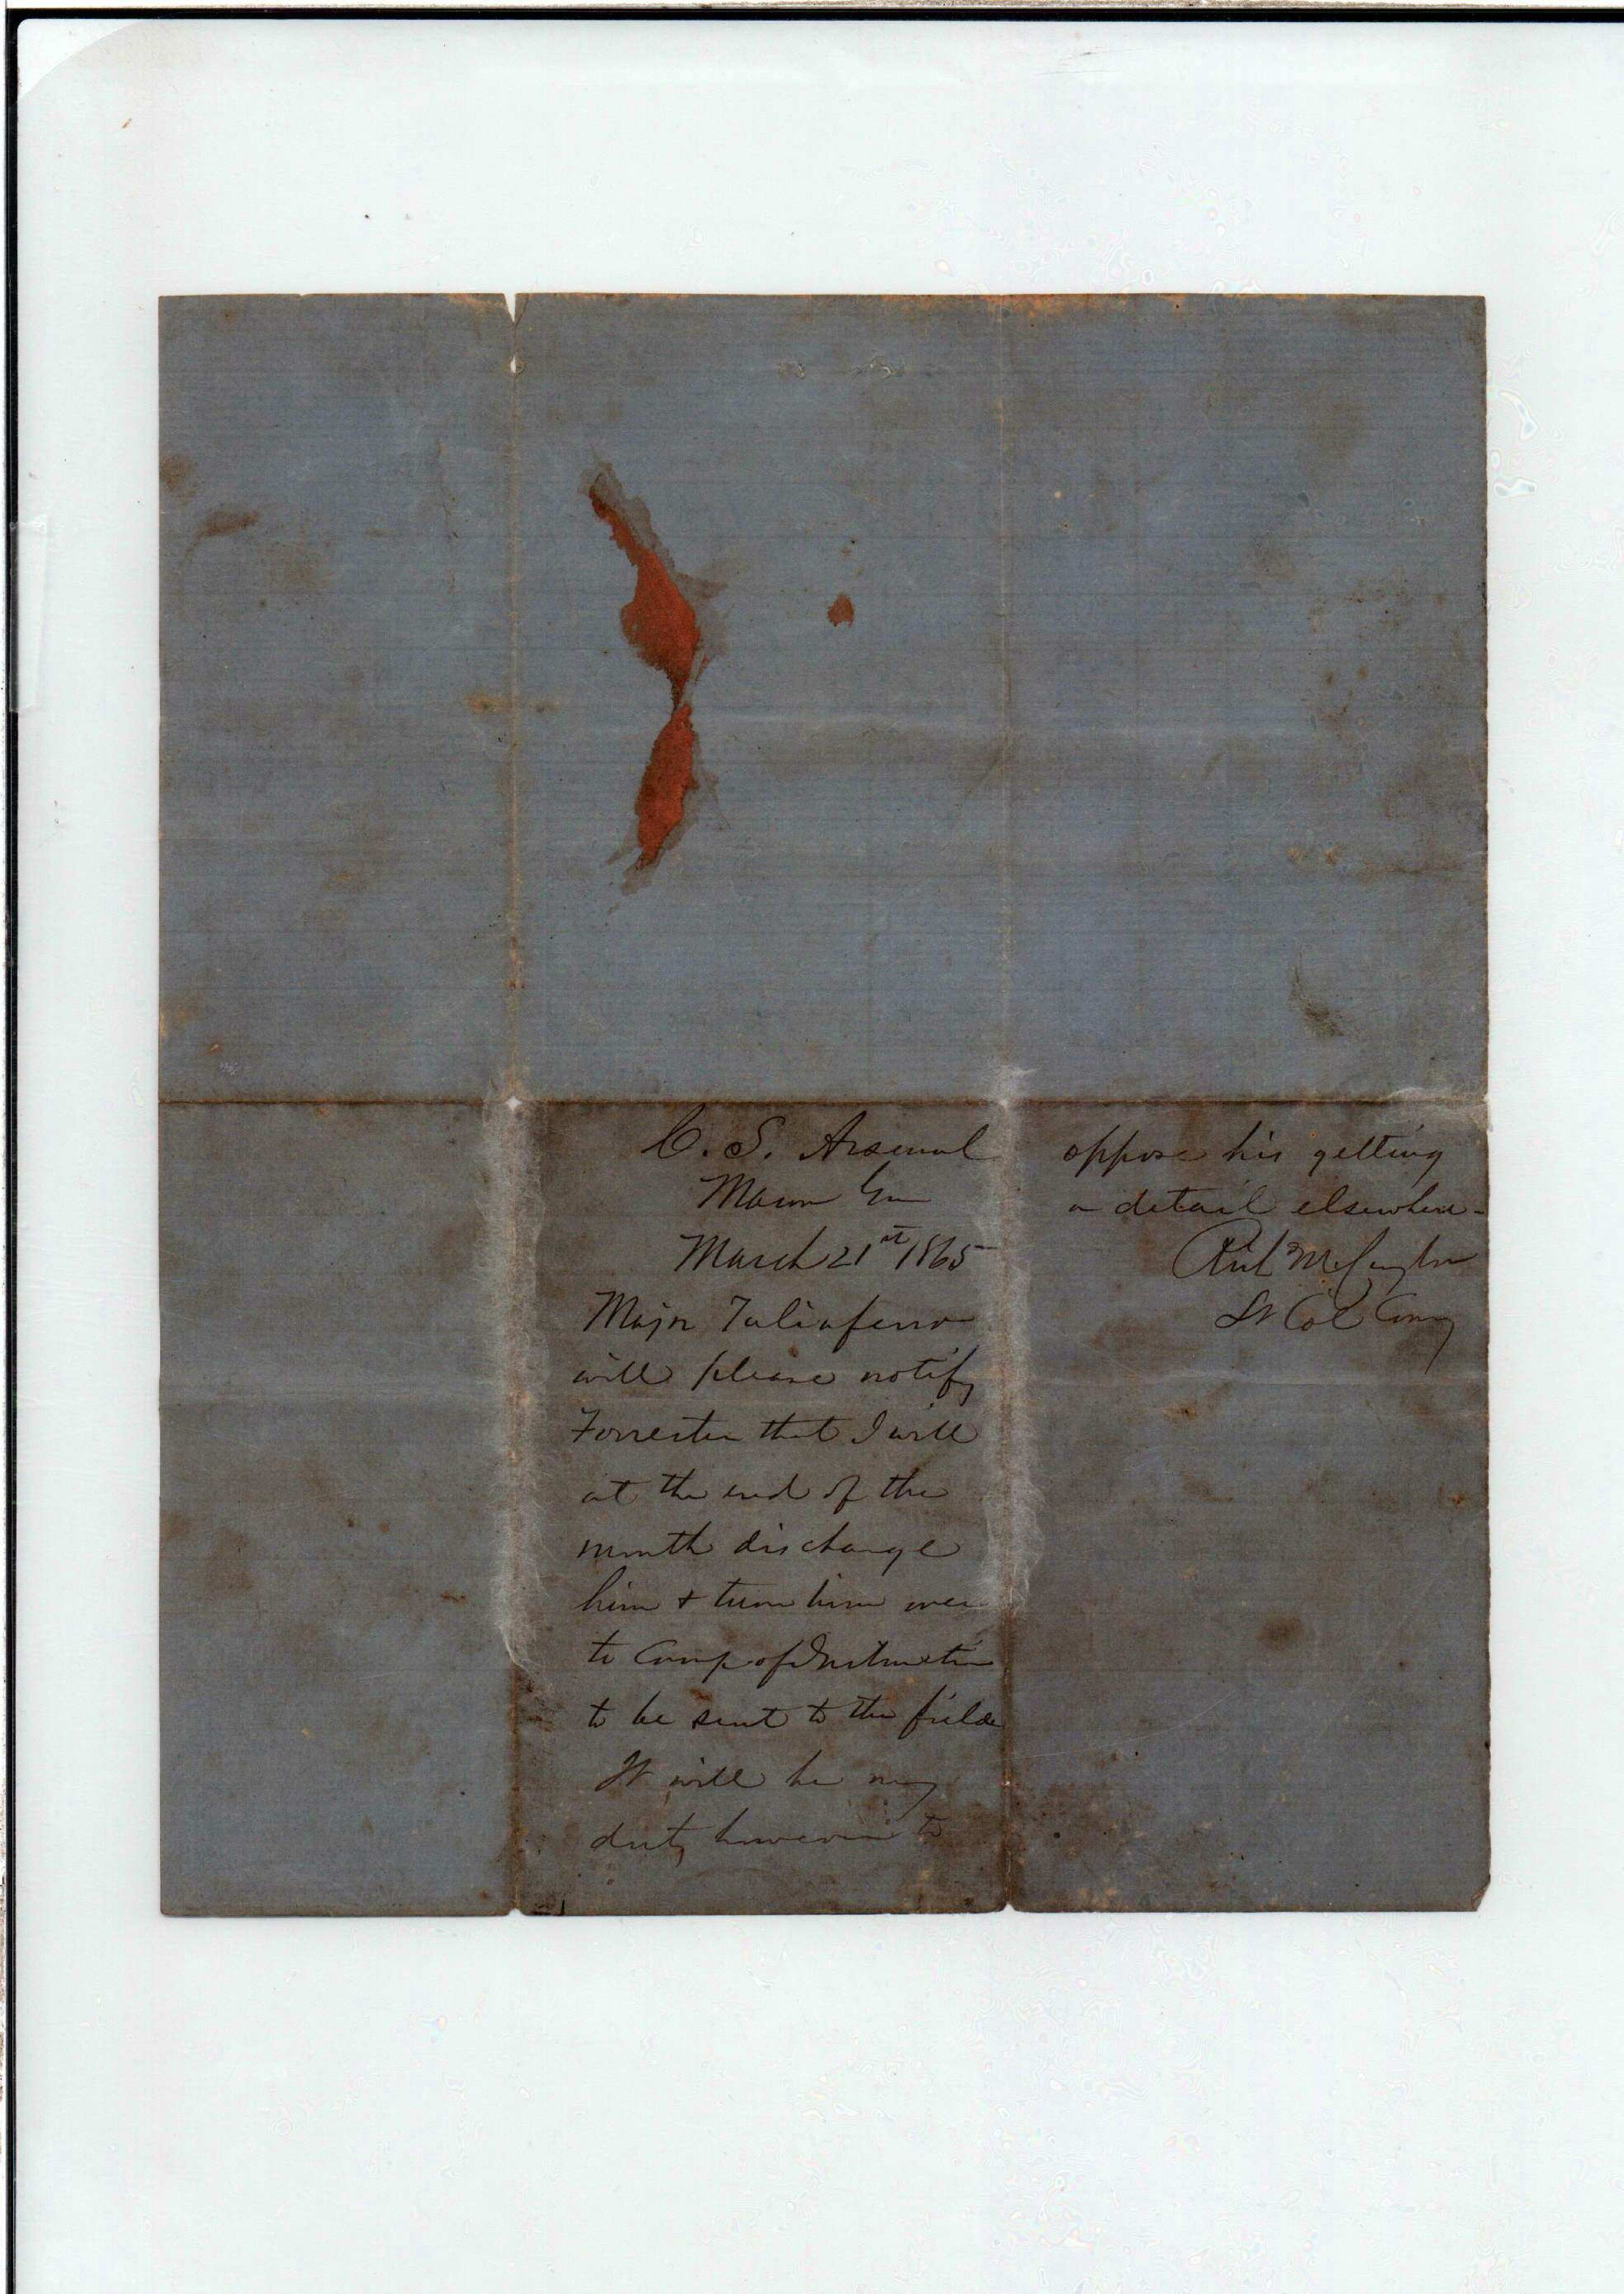 C. S. Arsenal
Macon Geo
March 21st 1865
Major Taliaferro
will please notify
Forrester that I will
at the end of the
month discharge
him + turn him over
to Camp of Instruction
to be sent to the field
It will be my
duty however to
oppose his getting
a detail elsewhere -
Lt Col Comg